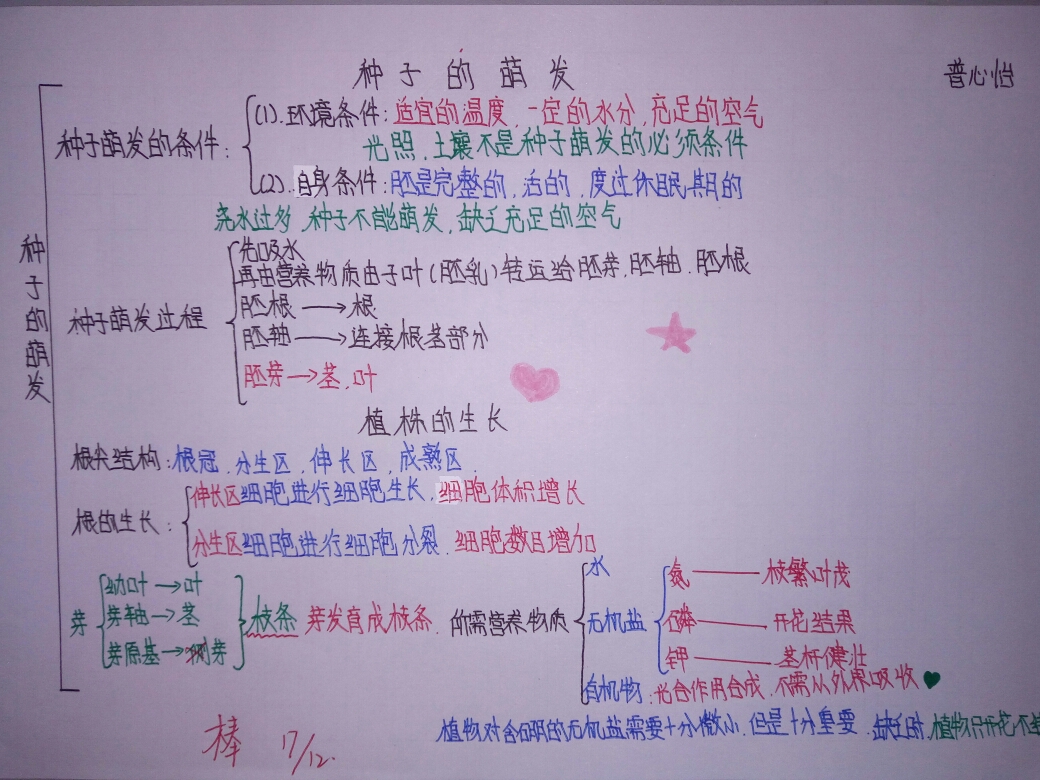 种子的萌发
普心怡
种子的萌发
种子萌发的条件:
(1).环境条件:适宜的温度,一定的水分,充足的空气
光照.土壤不是种子萌发的必须条件
(2).自身条件:胚是完整的,活的,度过休眠期的
浇水过多,种子不能萌发,缺乏充足的空气
种子萌发过程
先吸水
再由营养物质由子叶(胚乳)转运给胚芽,胚轴.胚根
胚根→根
胚轴→连接根茎部分
胚芽→茎,叶
植株的生长
根尖结构:根冠.分生区,伸长区,成熟区.
根的生长:
伸长区细胞进行细胞生长.细胞体积增长
分生区细胞进行细胞分裂.细胞数目增加
芽
幼叶→叶
芽轴→茎
芽原基→侧芽
枝条 芽发育成枝条.
所需营养物质
水
无机盐
氮——枝繁叶茂
磷——开花结果
钾——茎杆健壮
有机物:光合作用合成.不需从外界吸收
植物对含硼的无机盐需要十分微小.但是十分重要.缺乏时.植物只开花不
棒 17/12.